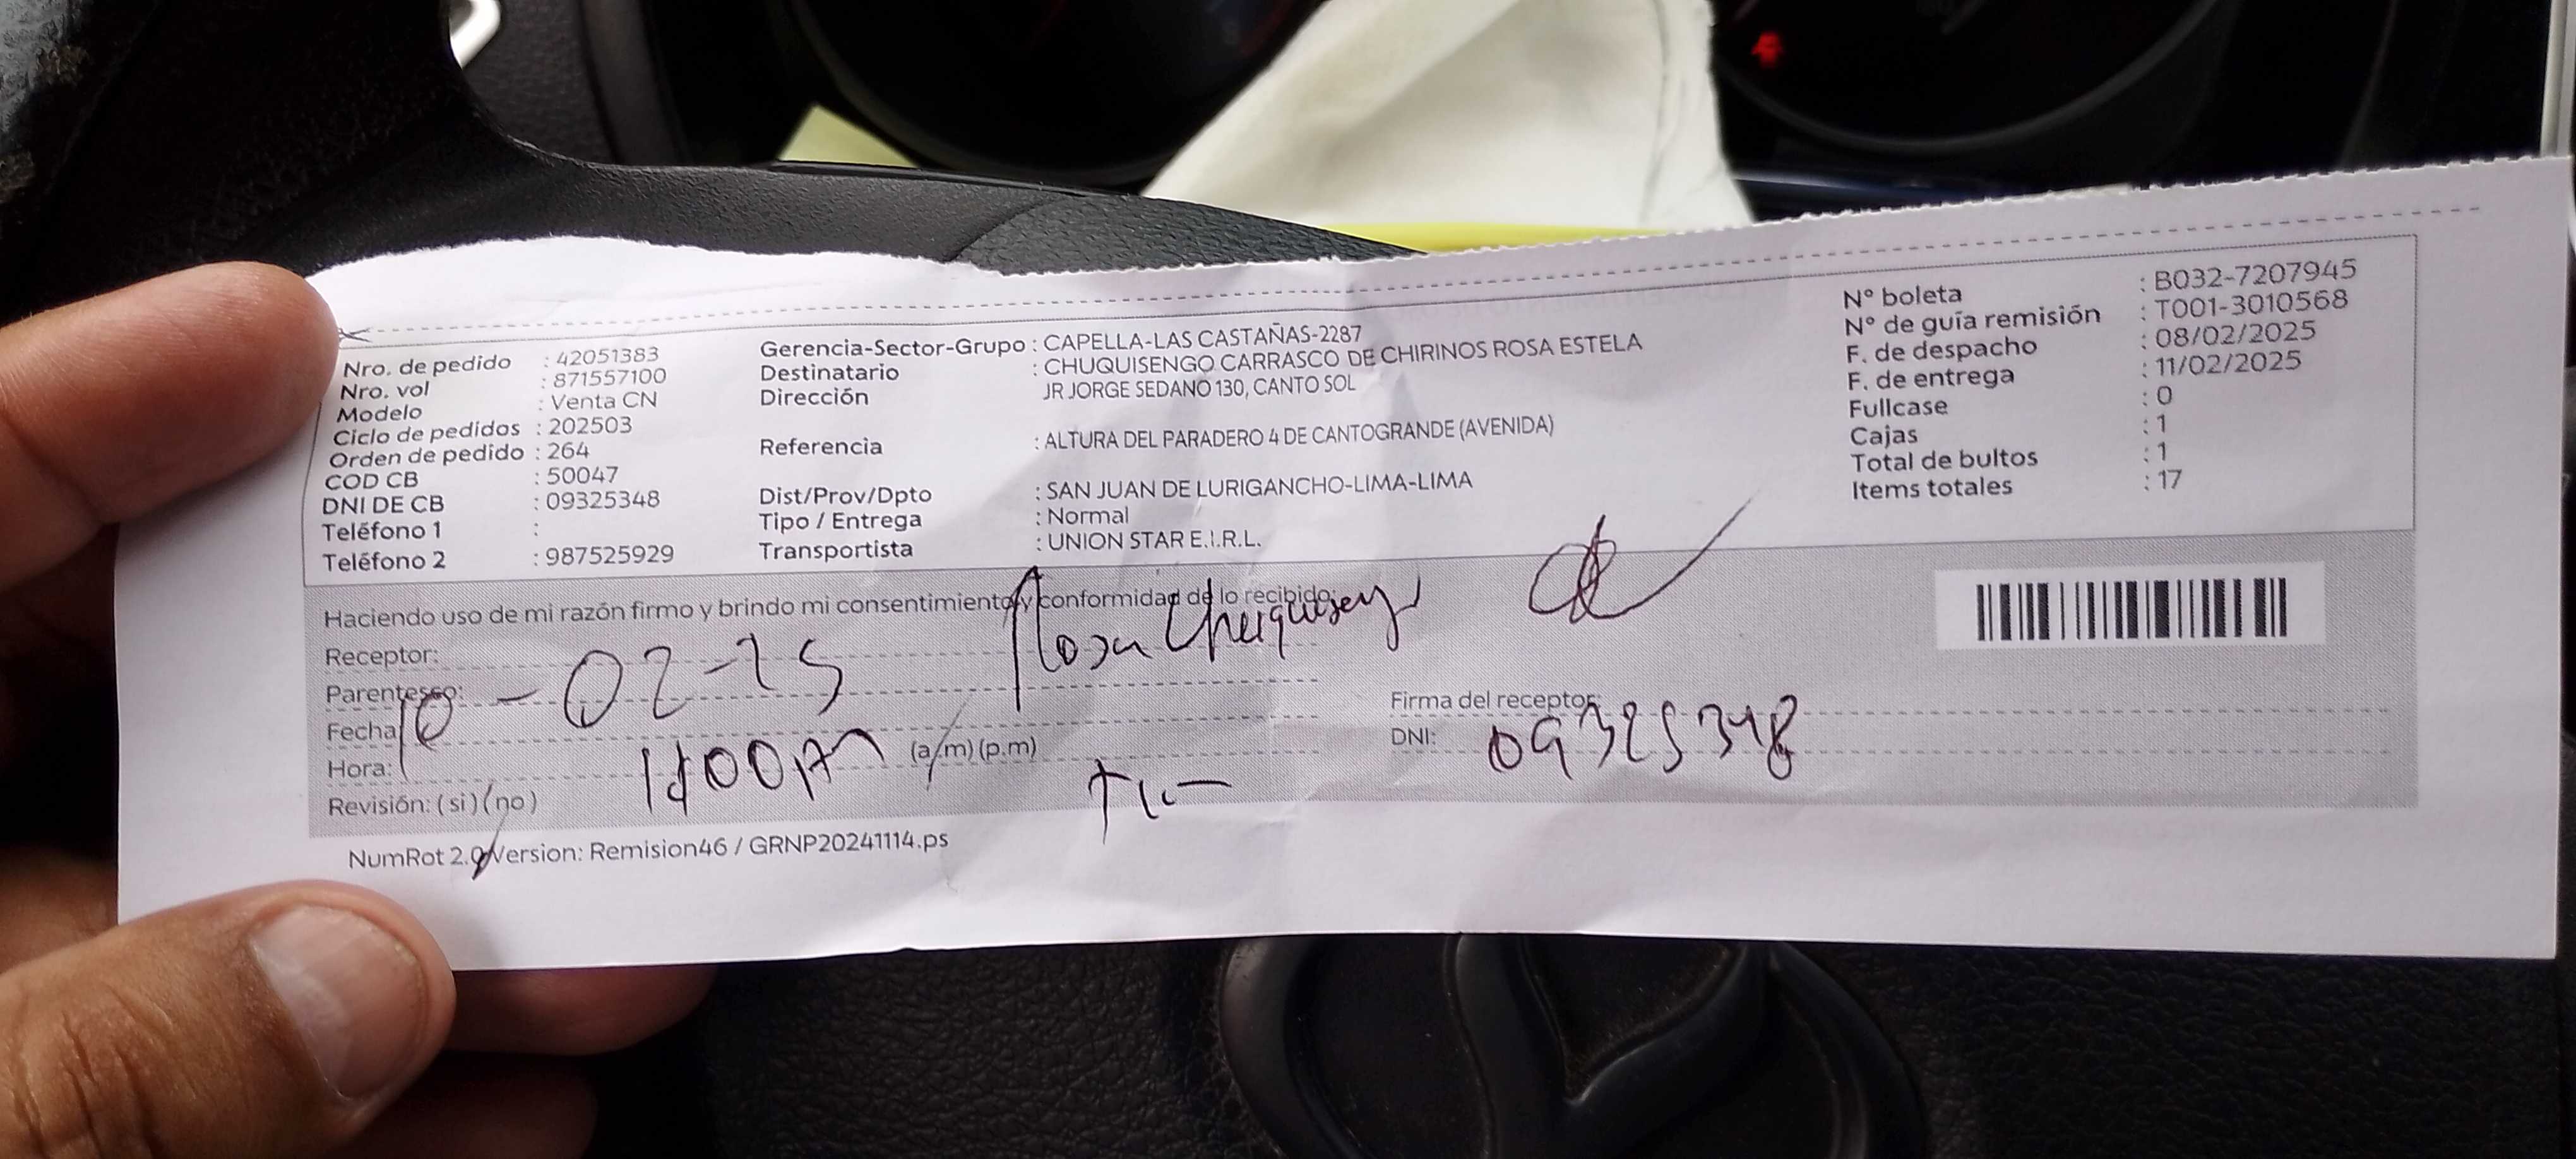 Nro. de pedido : 42051383
Nro. vol : 871557100
Modelo : Venta CN
Ciclo de pedidos : 202503
Orden de pedido : 264
COD CB : 50047
DNI DE CB : 09325348
Teléfono 1 :
Teléfono 2 : 987525929
Gerencia-Sector-Grupo : CAPELLA-LAS CASTAÑAS-2287
Destinatario : CHUQUISENGO CARRASCO DE CHIRINOS ROSA ESTELA
Dirección JR JORGE SEDANO 130, CANTO SOL
Referencia : ALTURA DEL PARADERO 4 DE CANTOGRANDE (AVENIDA)
Dist/Prov/Dpto : SAN JUAN DE LURIGANCHO-LIMA-LIMA
Tipo / Entrega : Normal
Transportista : UNION STAR E.I.R.L.
N° boleta : B032-7207945
N° de guía remisión : T001-3010568
F. de despacho : 08/02/2025
F. de entrega : 11/02/2025
Fullcase : 0
Cajas : 1
Total de bultos : 1
Items totales : 17
Haciendo uso de mi razón firmo y brindo mi consentimiento y conformidad de lo recibido:
Receptor: Rosa
Parentesco:
Fecha 10-02-25
Hora: (a.m) (p.m)
Revisión: (si) (no)
Firma del receptor:
DNI: 09325348
NumRot 2.0 Version: Remision46 / GRNP20241114.ps